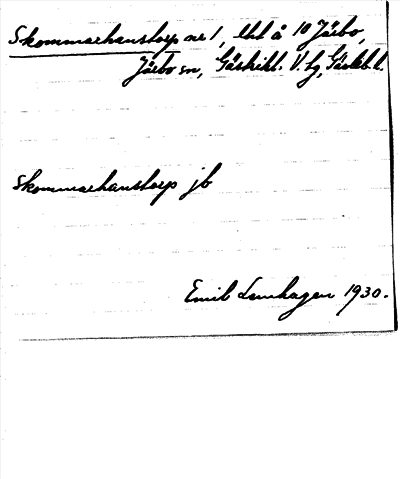 Skommarhanstorp nr 1, lht å 10 Järbo,
Järbo sn, Gästrikl. V. tg, Gävleb. l.
Skommarhanstorp jb
Emil Lenhagen 1930.